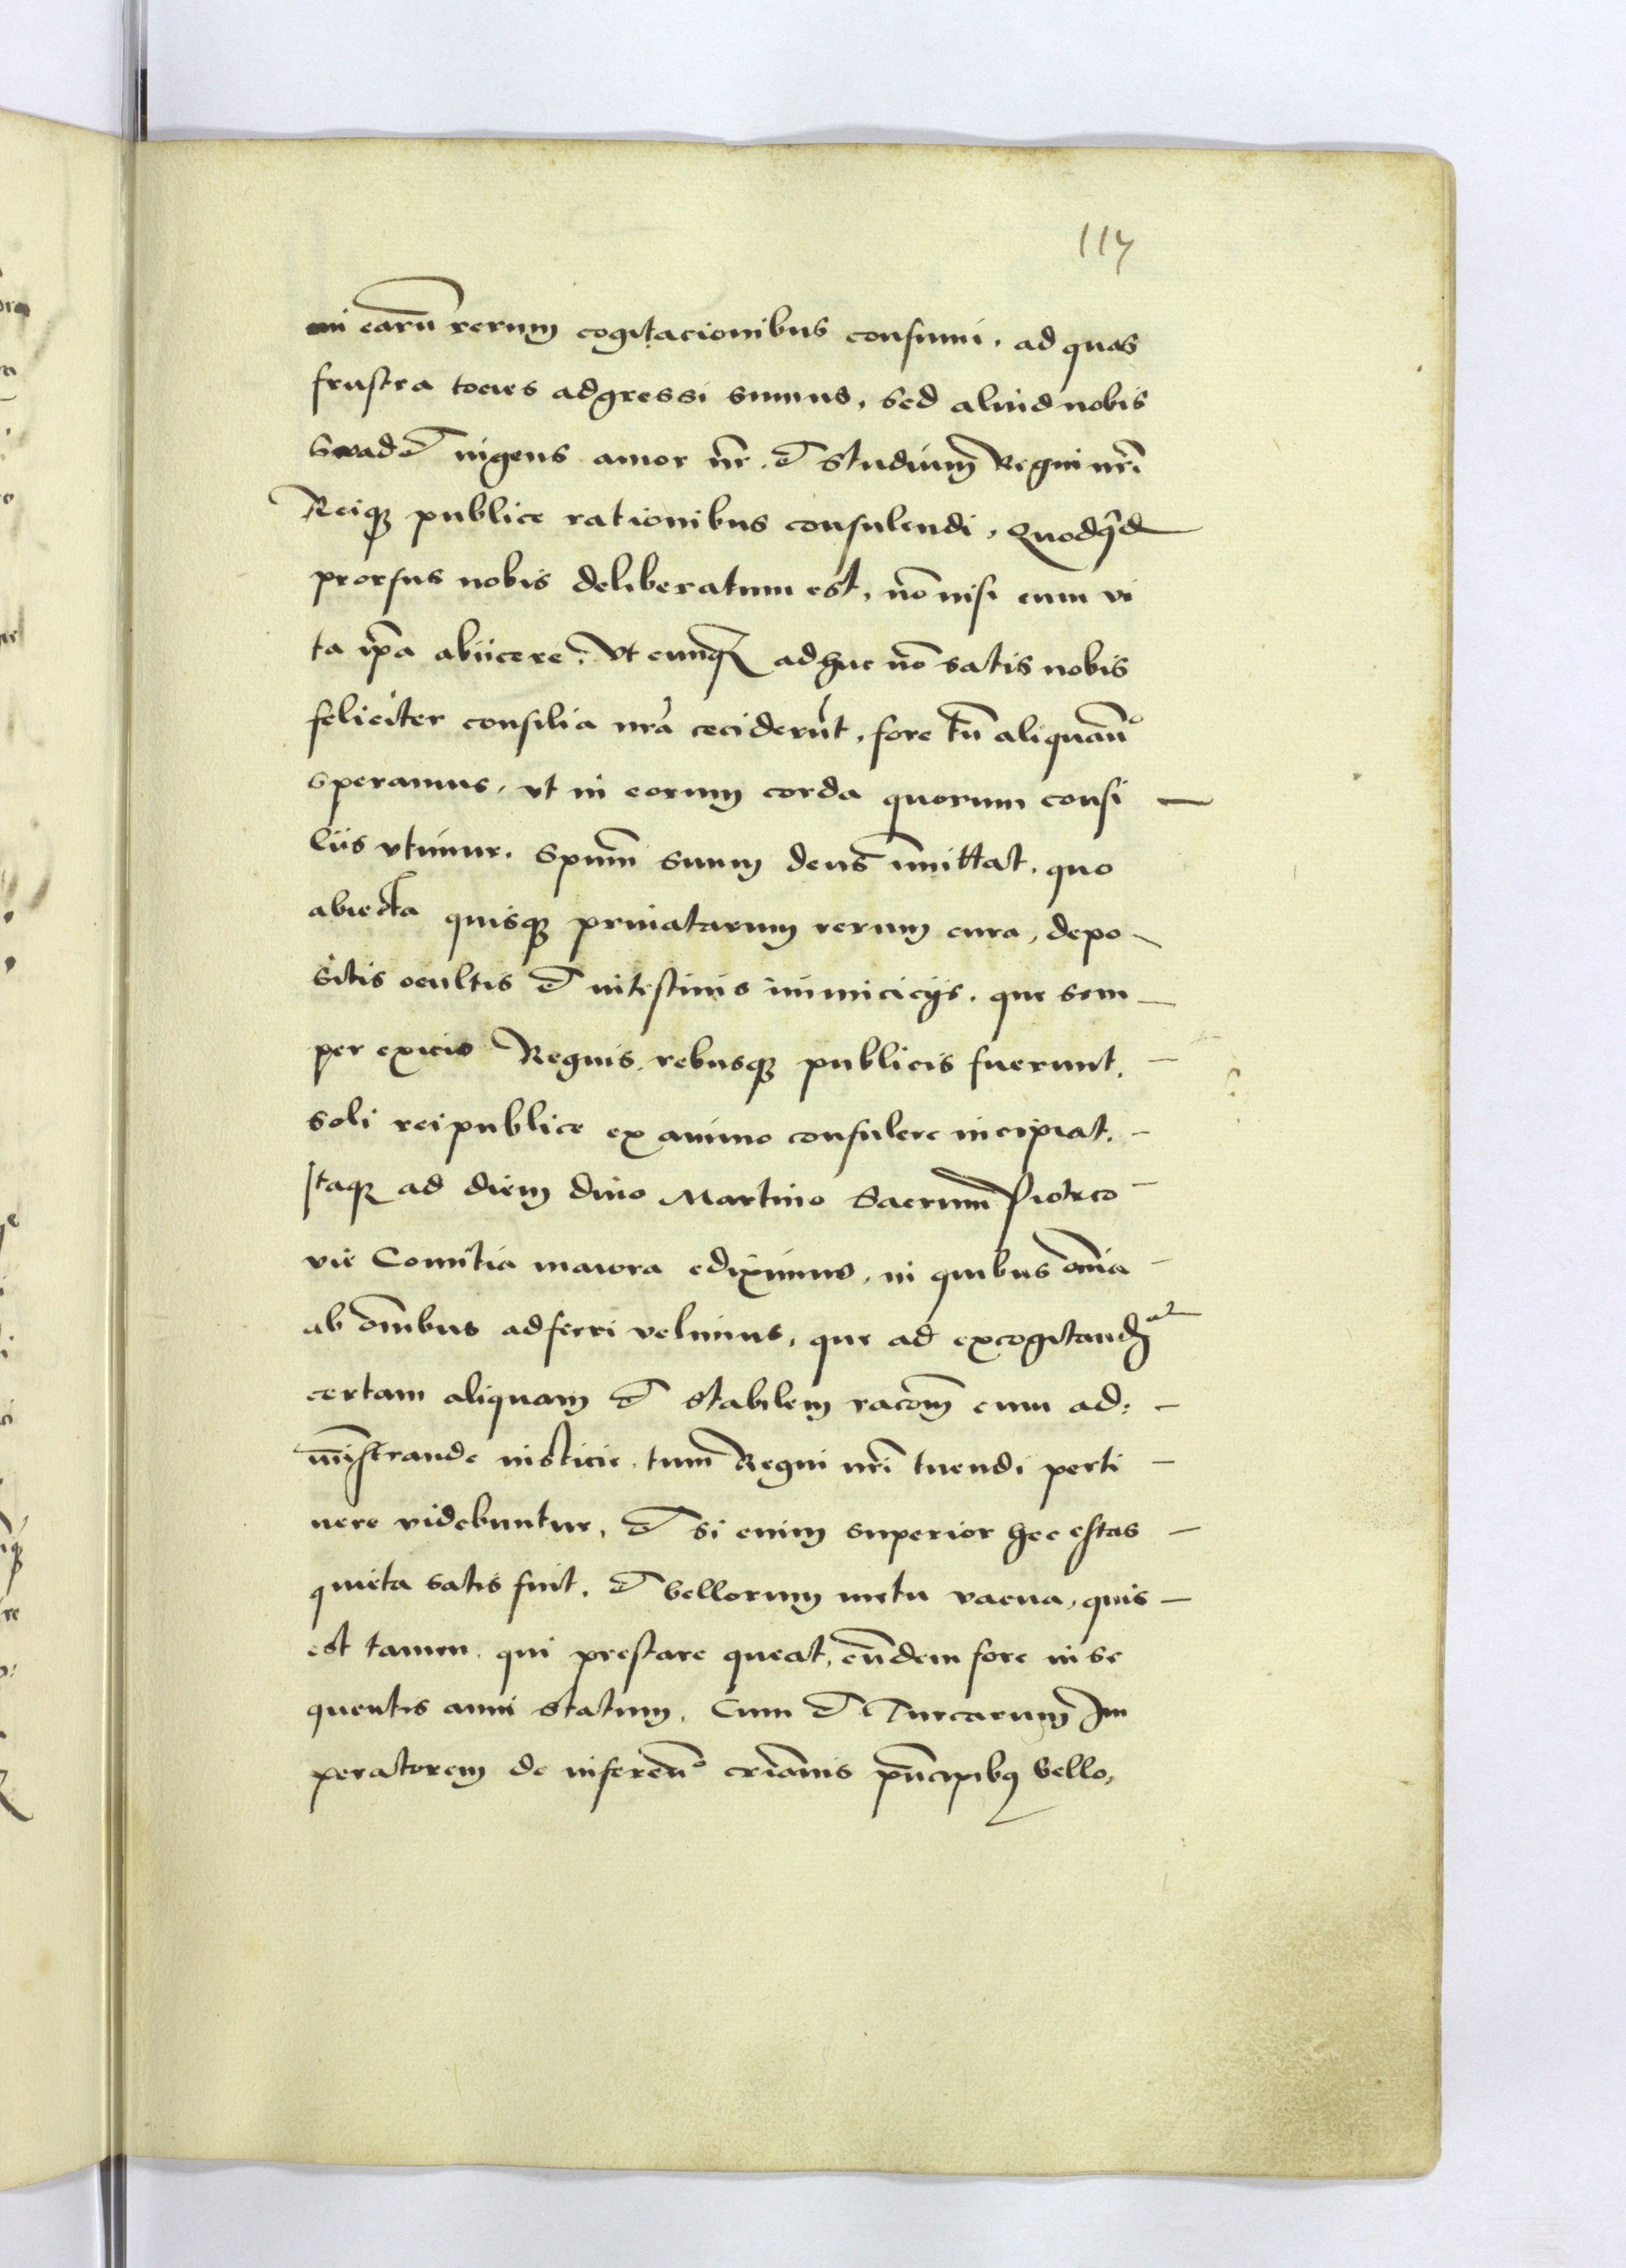 117
in earū rerum cogitacionibus consumi, ad quas
frustra tocies adgressi sumus, sed aliud nobis
Svadet ingens amor nr̄, et studium Regni nrī
Reiqꝫ publice rationibus consulendi, Quodqd̄
prorsus nobis deliberatum est, nō nisi cum vi
ta ip̄a abiicere, Vt cunqꝫ adhuc nō satis nobis
feliciter consilia nrā ceciderūt, fore tn̄ aliquanº
speramus, vt in eorum corda quorum consi –
liis vtimur, Spūm suum deus im̄ittat, quo
abiecta quisqꝫ priuatarum rerum cura, depo –
sitis ocultis et intestinis inimiciciis, que sem –
per exicio Regnis, rebusqꝫ publicis fuerunt, –
soli reipublice ex animo consulere incipiat, –
Itaqꝫ ad diem diuo Martino Sacrum Piotrco –
vie Comitia maiora ediximus, in quibus om̄ia –
ab om̄ibus adferri velimus, que ad excogitandā
certam aliquam et stabilem racōem cum ad: –
ministrande iusticie, tum Regni nrī tuendi perti –
nere videbuntur, et si enim superior hec estas –
quieta satis fuit, et bellorum metu vacua, quis –
est tamen, qui prestare queat, eūdem fore in se
quentis anni statum, Cum et Turcarum Im
peratorem de inferenº cr̄ianis prīcipibꝫ bello,